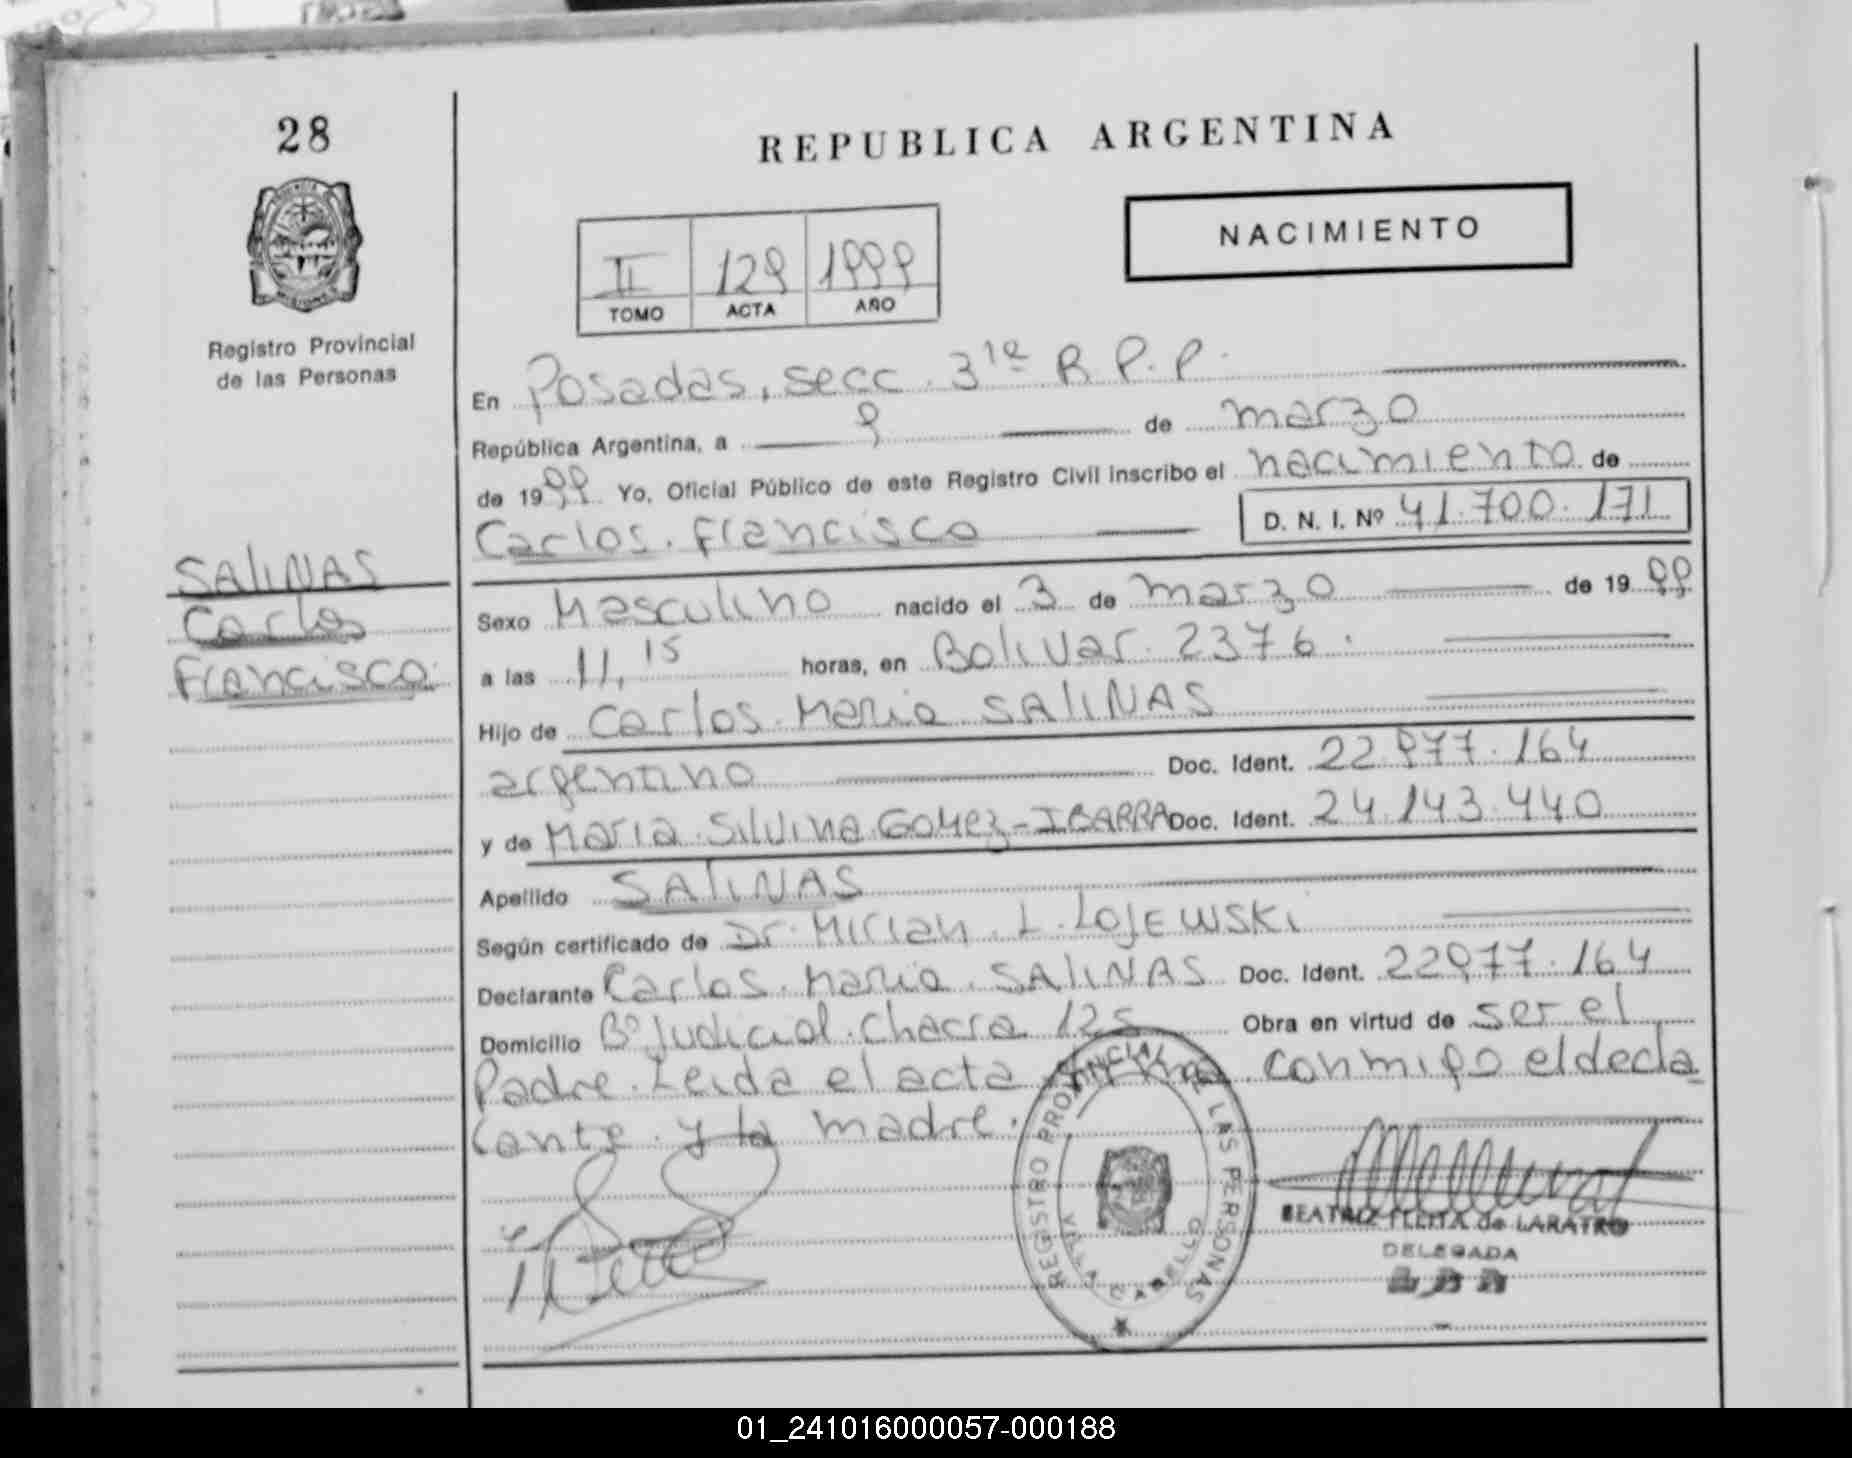 28
REPUBLICA ARGENTINA
NACIMIENTO
II 129 1999
TOMO ACTA AÑO
Registro Provincial
de las Personas
En Posadas, secc. 3ra R.P.P.
República Argentina, a 9 de marzo
de 1999 Yo, Oficial Público de este Registro Civil inscribo el nacimiento de
Carlos Francisco D. N. I. Nº 41.700.171
SALINAS
Carlos
Francisco
Sexo Masculino nacido el 3 de marzo de 1999
a las 11,15 horas, en Bolivar 2376.
Hijo de Carlos Maria SALINAS
argentino Doc. Ident. 22.977.164
y de Maria Silvina Gomez-IBARRA Doc. Ident. 24.143.440
Apellido SALINAS
Según certificado de Dr. Mirian L. Lojewski
Declarante Carlos Maria SALINAS Doc. Ident. 22977.164
Domicilio Bº Judicial. Chacra 125 Obra en virtud de ser el
Padre. Leida el acta conmigo el decla
rante y la madre.
REGISTRO PROVINCIAL DE LAS PERSONAS
VILLA CABELLO
BEATRIZ de LARATRO
DELEGADA
01_241016000057-000188